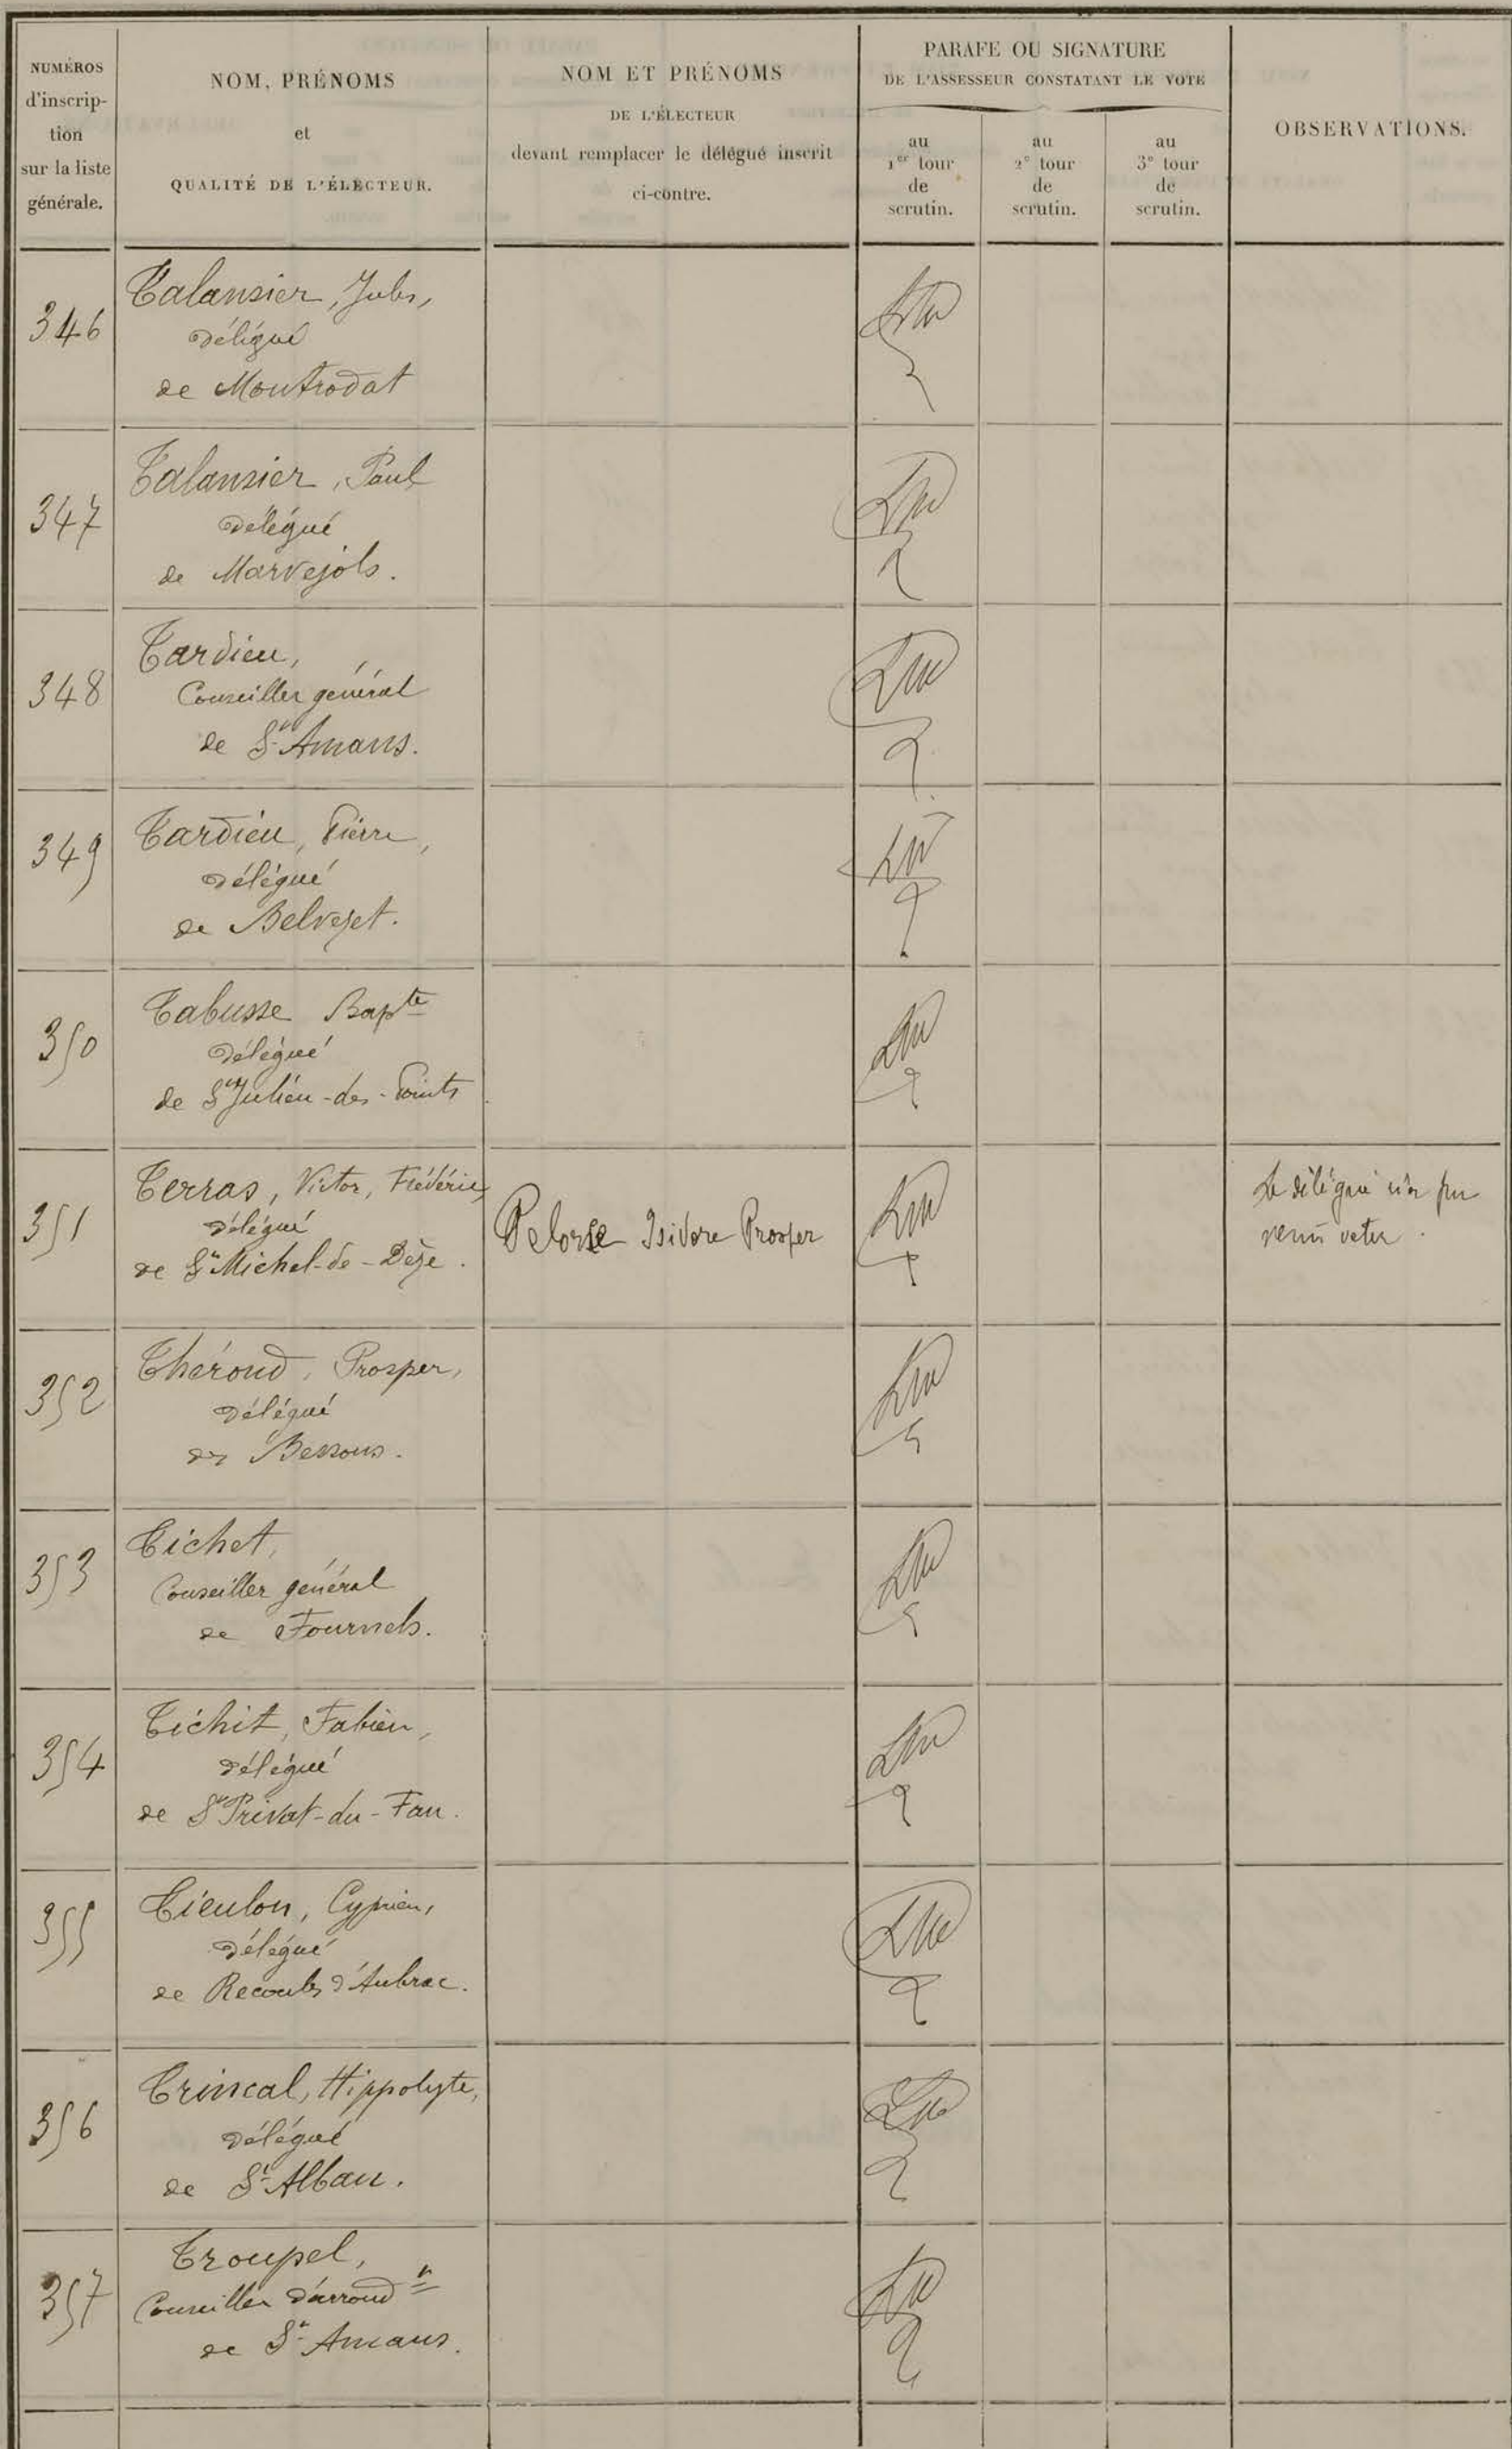 NUMÉROS
d'inscrip-
tion
sur la liste
générale.
NOM, PRÉNOMS
et
QUALITÉ DE L'ÉLECTEUR.
NOM ET PRÉNOMS
DE L'ÉLECTEUR
devant remplacer le délégué inscrit
ci-contre.
PARAFE OU SIGNATURE
DE L'ASSESSEUR CONSTATANT LE VOTE
au
1er tour
de
scrutin.
au
2e tour
de
scrutin.
au
3e tour
de
scrutin.
OBSERVATIONS.
346
Talansier, Jules,
délégué
de Montrodat
347
Talansier, Paul
délégué
de Marvejols.
348
Tardieu,
Conseiller général
de St Amans.
349
Tardieu, Pierre,
délégué
de Belvezet.
350
Tabusse Bapte
délégué
de St Julien-des-Points
351
Terras, Victor, Frédéric,
délégué
de St Michel-de-Dèze.
Pelorse Isidore Prosper
Le délégué n'a pu
venir voter.
352
Thérond, Prosper,
délégué
des Bessons.
353
Tichet,
Conseiller général
de Fournels.
354
Tichit, Fabien,
délégué
de St Privat-du-Fau.
355
Tieulon, Cyprien,
délégué
de Recoules d'Aubrac.
356
Trinscal, Hippolyte,
délégué
de St Alban.
357
Troupel,
Conseiller d'arrondt
de St Amans.